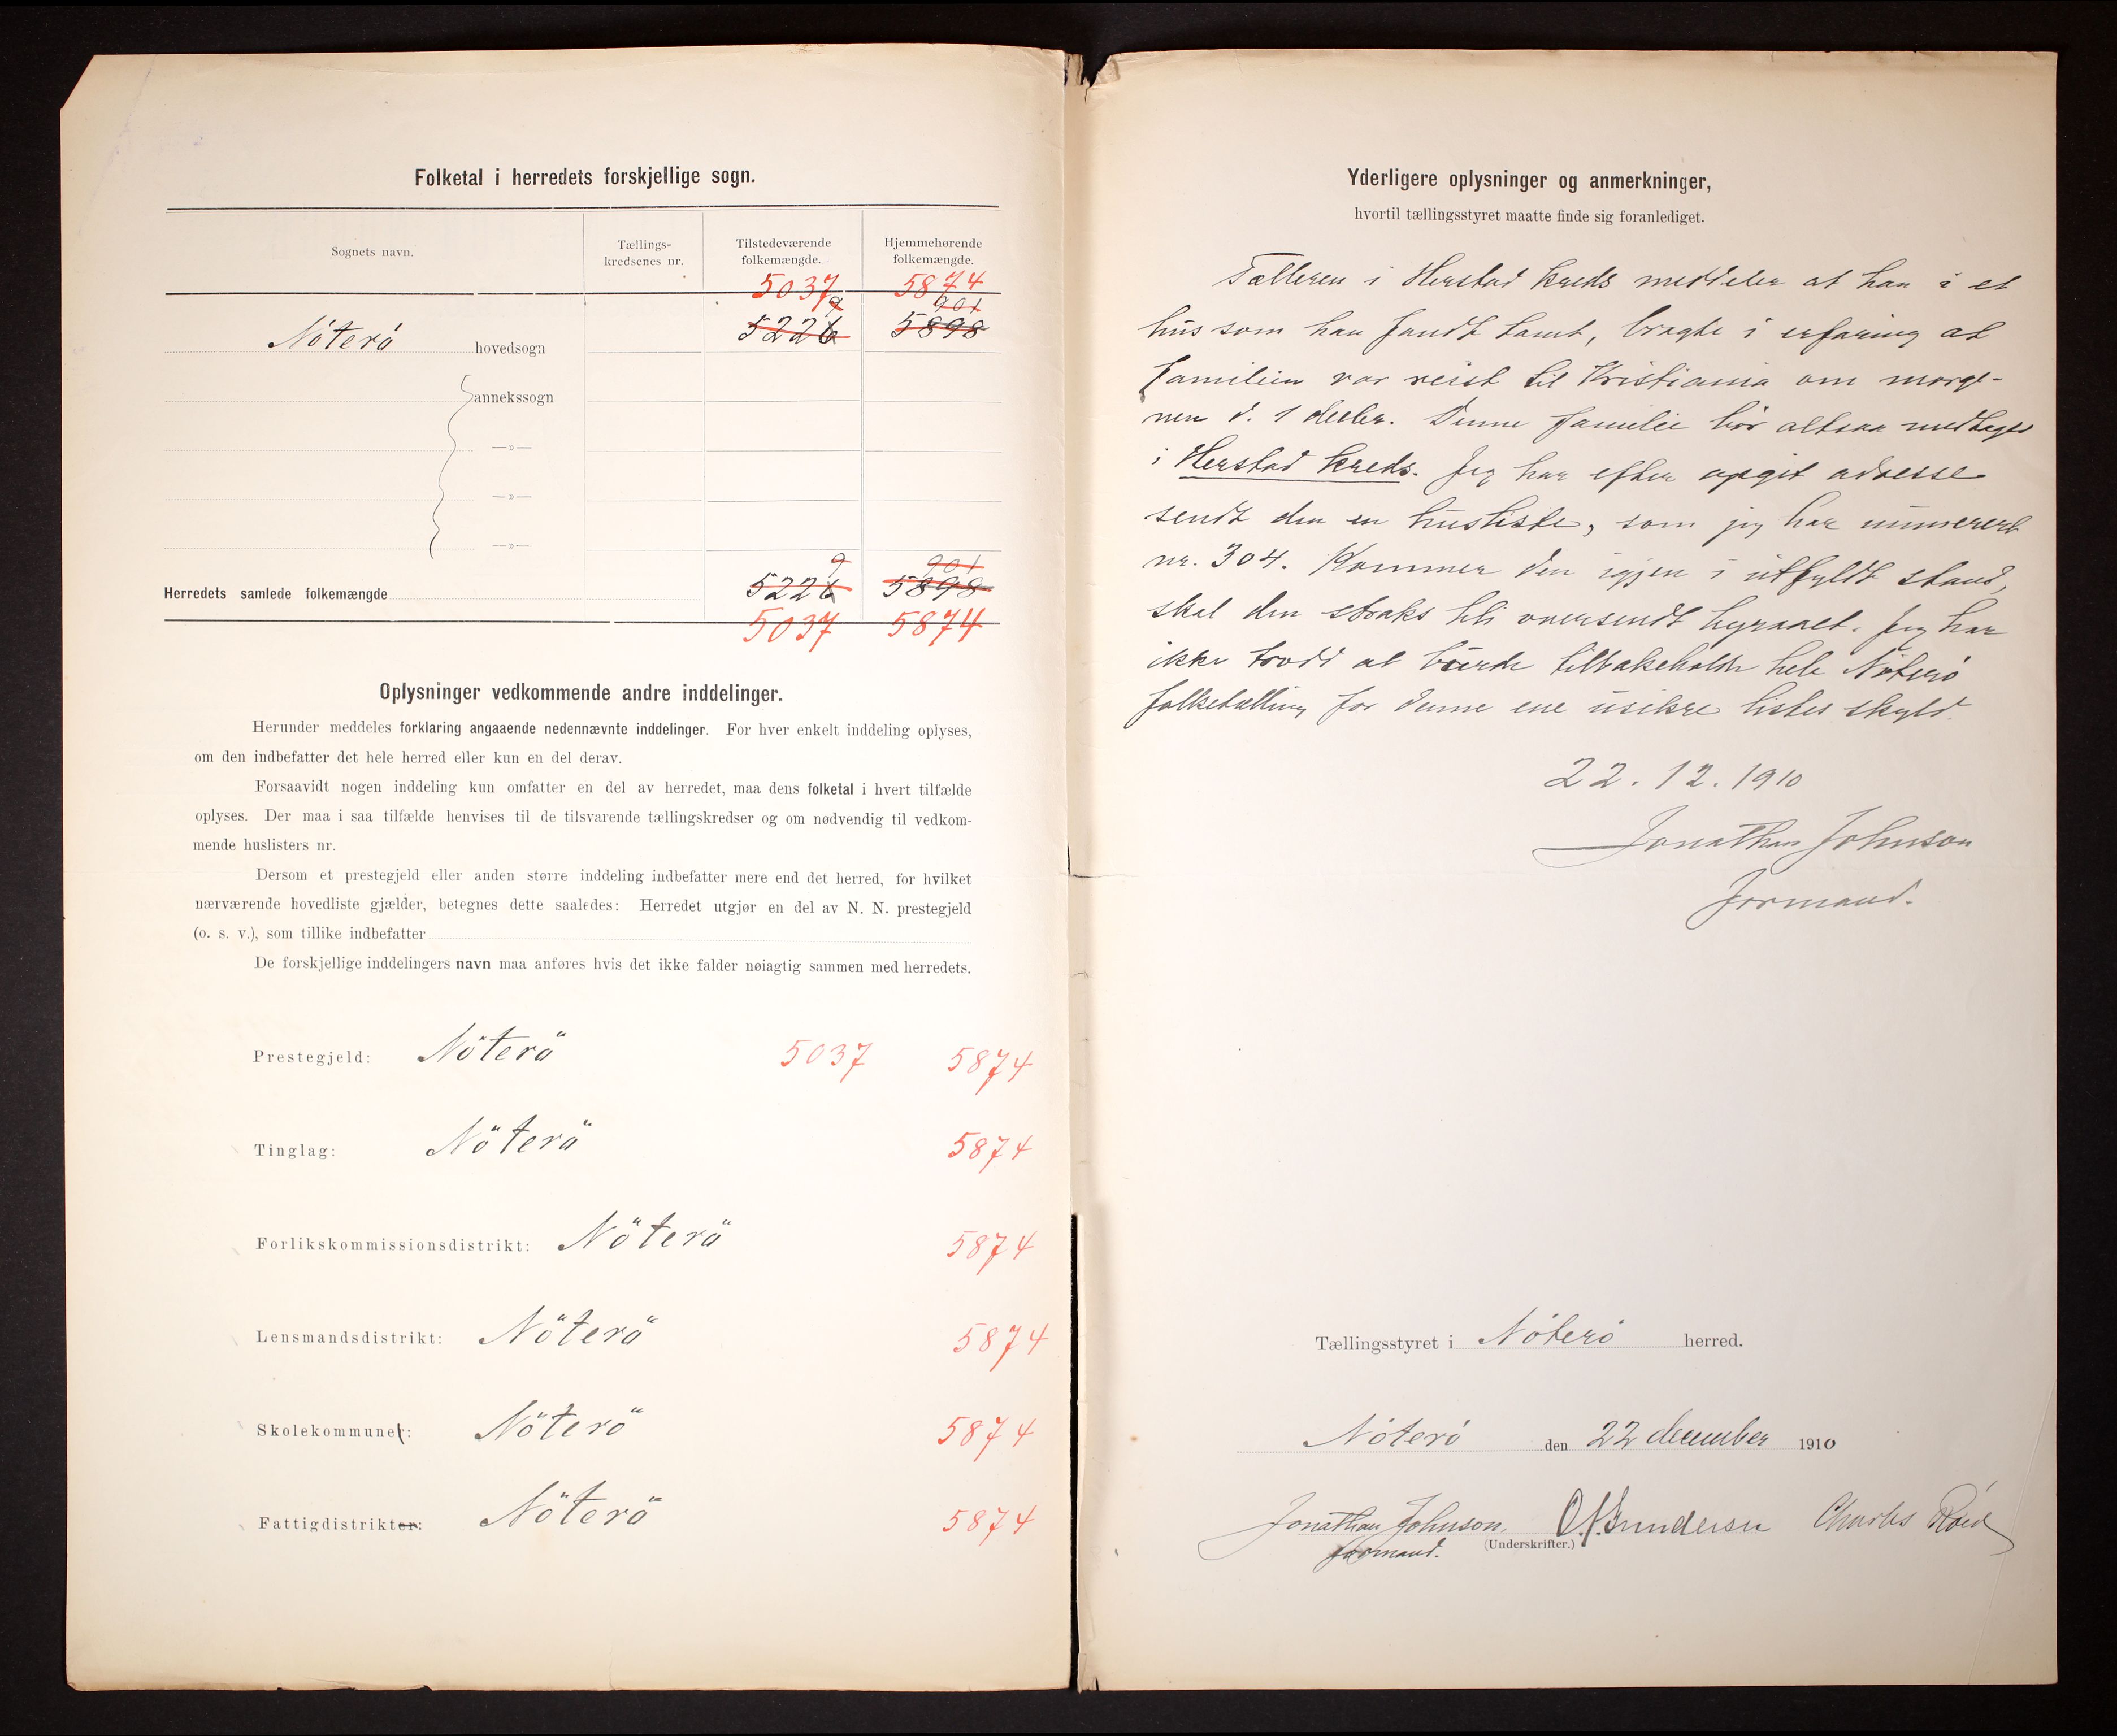 Folketal i herredets forskjellige sogn.
Sognets navn.
Tællings-
kredsenes nr.
Tilstedeværende
folkemængde.
Hjemmehørende
folkemængde.
5037 5874
9 901
Nöterö hovedsogn 5226 5898
annekssogn
—»—
—»—
—»—
9 901
Herredets samlede folkemængde 5226 5898
5037 5874
Oplysninger vedkommende andre inddelinger.
Herunder meddeles forklaring angaaende nedennævnte inddelinger. For hver enkelt inddeling oplyses,
om den indbefatter det hele herred eller kun en del derav.
Forsaavidt nogen inddeling kun omfatter en del av herredet, maa dens folketal i hvert tilfælde
oplyses. Der maa i saa tilfælde henvises til de tilsvarende tællingskredser og om nødvendig til vedkom-
mende huslisters nr.
Dersom et prestegjeld eller anden større inddeling indbefatter mere end det herred, for hvilket
nærværende hovedliste gjælder, betegnes dette saaledes: Herredet utgjør en del av N. N. prestegjeld
(o. s. v.), som tillike indbefatter
De forskjellige inddelingers navn maa anføres hvis det ikke falder nøiagtig sammen med herredets.
Prestegjeld: Nöterö 5037 5874
Tinglag: Nöterö 5874
Forlikskommissionsdistrikt: Nöterö 5874
Lensmandsdistrikt: Nöterö 5874
Skolekommuner: Nöterö 5874
Fattigdistrikter: Nöterö 5874
Yderligere oplysninger og anmerkninger,
hvortil tællingsstyret maatte finde sig foranlediget.
Tælleren i Herstad kreds meddeler at han i et
hus som han fandt tomt, bragte i erfaring at
familien var reist til Kristiania om morge-
nen d. 1 decbr. Denne familie bör altsaa medtages
i Herstad kreds. Jeg har efter opgit adresse
sendt den en husliste, som jeg har nummerert
nr. 304. Kommer den igjen i utfyldt stand,
skal den straks bli oversendt byraaet. Jeg har
ikke trodd at burde tilbakeholde hele Nöterö
folketælling for denne ene usikre listes skyld.
22.12.1910
Jonathan Johnson
formand.
Tællingsstyret i Nöterö herred.
Nöterö den 22 december 1910
Jonathan Johnson. O.J. Gundersen Charles Röed
formand.
(Underskrifter.)